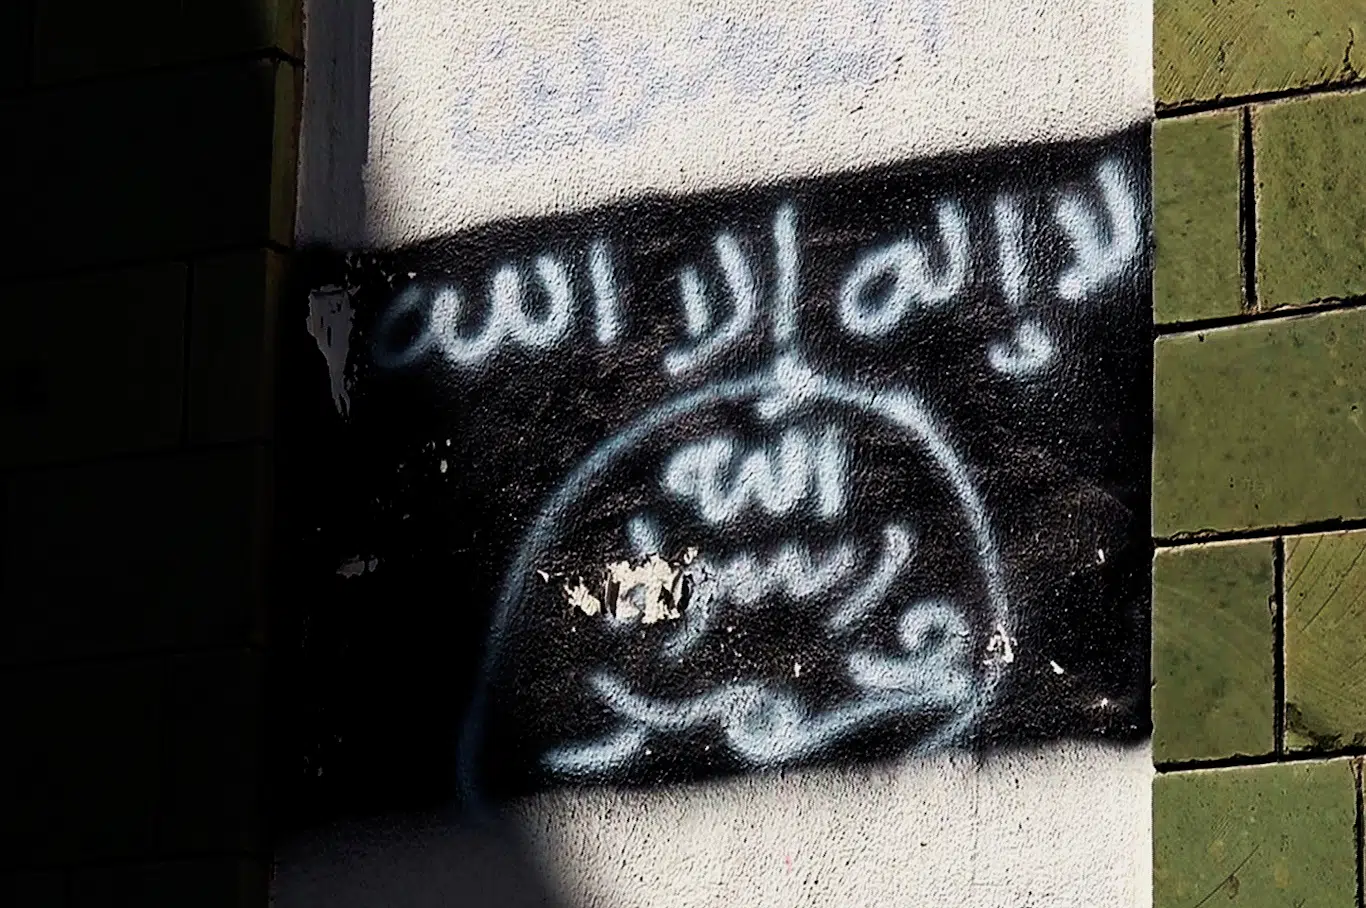 لا إله إلا الله
الله
رسول
محمد